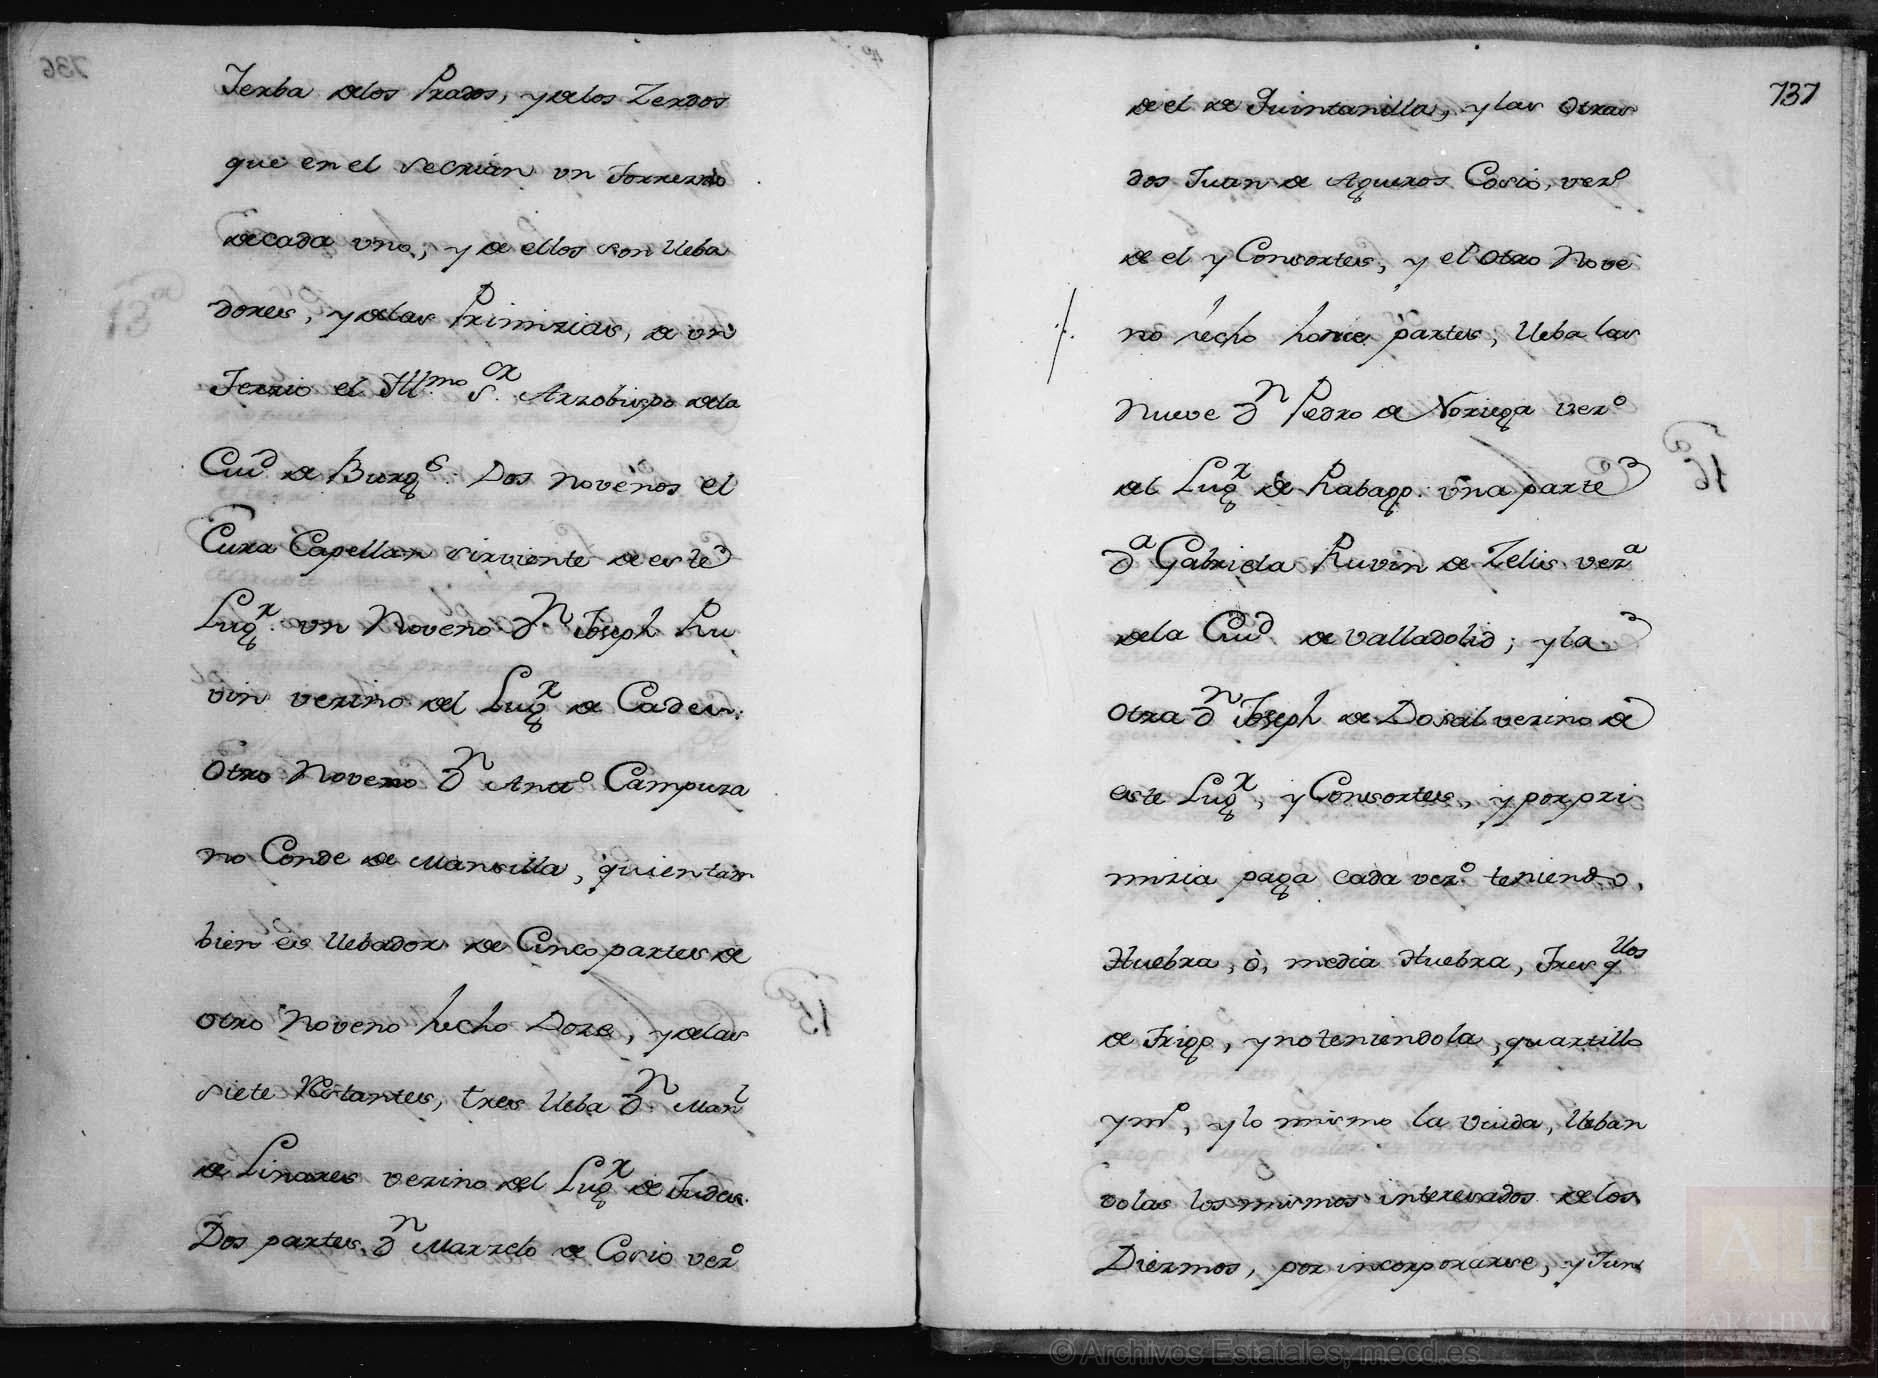 Jerba delos Prados, y delos Zerdos
que en el secrian un Torrezno
decada uno; y de ellos son lleba
dores, y delas Primizias, de un
Terzio el Yll.mo S.or Arzobispo dela
Ciud de Burgs. Dos novenos el
Cura Capellan sirviente de este
Lugr. un Noveno Dn Joseph Ru
vin vezino del Lugr de Cades.
Otro Noveno Dn Anto Campuza
no Conde de Mansilla, quien tam
bien es llebador de Cinco partes de
otro Noveno hecho Doze, y delas
siete Restantes, tres lleba Dn. Manl
de Linares vezino del Lugr de Tudes.
Dos partes, Dn Marzelo de Cosio vezo
737
de el de Quintanilla, y las otras
dos Juan de Agueros Cosio, vezo
de el y Consortes, y el otro Nove
no hecho honze partes, lleba las
nueve Dn Pedro de Noriega vezo
del Lugr de Rabago. una parte
Da Gabriela Ruvin de Zelis veza
dela Ciud de Valladolid; y la
otra Dn Joseph de Dosal vezino de
este Lugr, y Consortes, y por pri
mizia paga cada vezo. teniendo,
Huebra, ò, media Huebra, Tres qllos
de Trigo, y no teniendola, quartillo
y mo, y lo mismo la viuda, lleban
dolas los mismos interesados delos
Diezmos, por incorporarse, y Jun
© Archivos Estatales, mecd.es